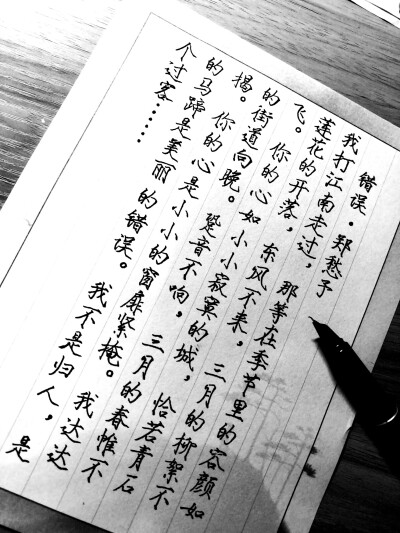 错误·郑愁予
我打江南走过，那等在季节里的容颜如
莲花的开落，东风不来，三月的柳絮不
飞。你的心如小小寂寞的城，恰若青石
的街道向晚。跫音不响，三月的春帷不
揭。你的心是小小的窗扉紧掩。我达达
的马蹄是美丽的错误。我不是归人，是
个过客……